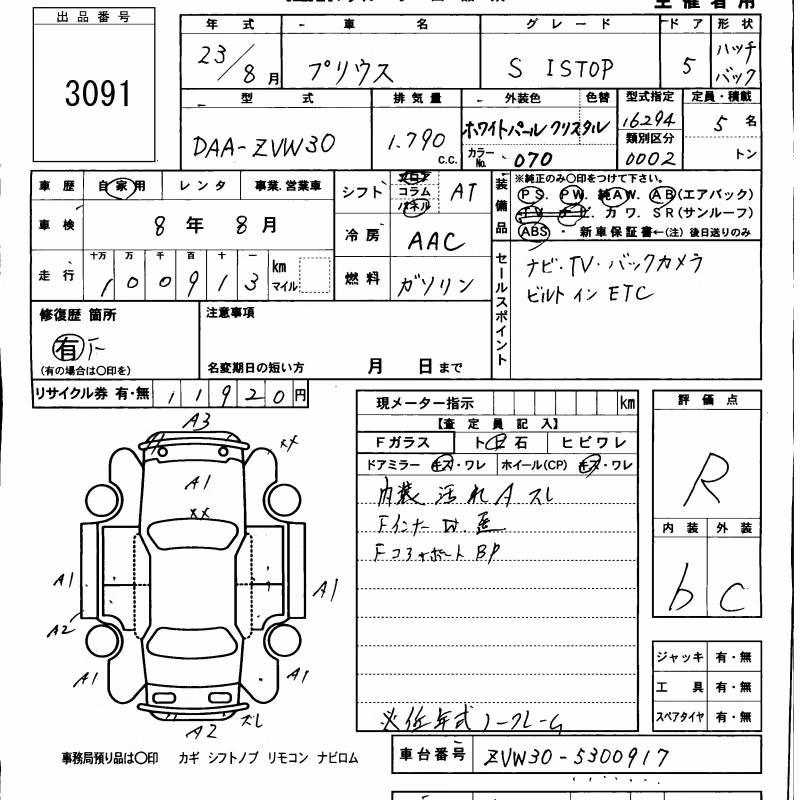 主催者用
出品番号
3091
年式 車名 グレード ドア 形状
23/8月 プリウス S ISTOP 5 ハッチバック
型式 排気量 外装色 色替 型式指定 定員・積載
DAA-ZVW30 1.790 c.c. ホワイトパール クリスタル 16294 5名
カラーNo. 070 類別区分 0002 トン
車歴 自家用 レンタ 事業.営業車
シフト フロア コラム パネル AT
装備品 ※純正のみ〇印をつけて下さい。
PS. PW. 純AW. AB(エアバック)
TV ナビ. カワ. SR(サンルーフ)
ABS ・ 新車保証書←(注)後日送りのみ
車検 8年 8月
冷房 AAC
走行 十万 万 千 百 十 一
100913 km マイル
燃料 ガソリン
セールスポイント
ナビ・TV・バックカメラ
ビルトイン ETC
修復歴 箇所
有
(有の場合は〇印を)
注意事項
名変期日の短い方 月 日まで
リサイクル券 有・無 11920円
現メーター指示 km
【査定員記入】
Fガラス トビ石 ヒビワレ
ドアミラー キズ・ワレ ホイール(CP) キズ・ワレ
内装 汚れ A スレ
Fインナー
Fコアサポート BP
※低年式 ノークレーム
評価点
R
内装 外装
b C
ジャッキ 有・無
工具 有・無
スペアタイヤ 有・無
A3
XX
A1
XX
A1
A1
A2
A1
A1
A2
スレ
事務局預り品は〇印 カギ シフトノブ リモコン ナビロム
車台番号 ZVW30-5300917